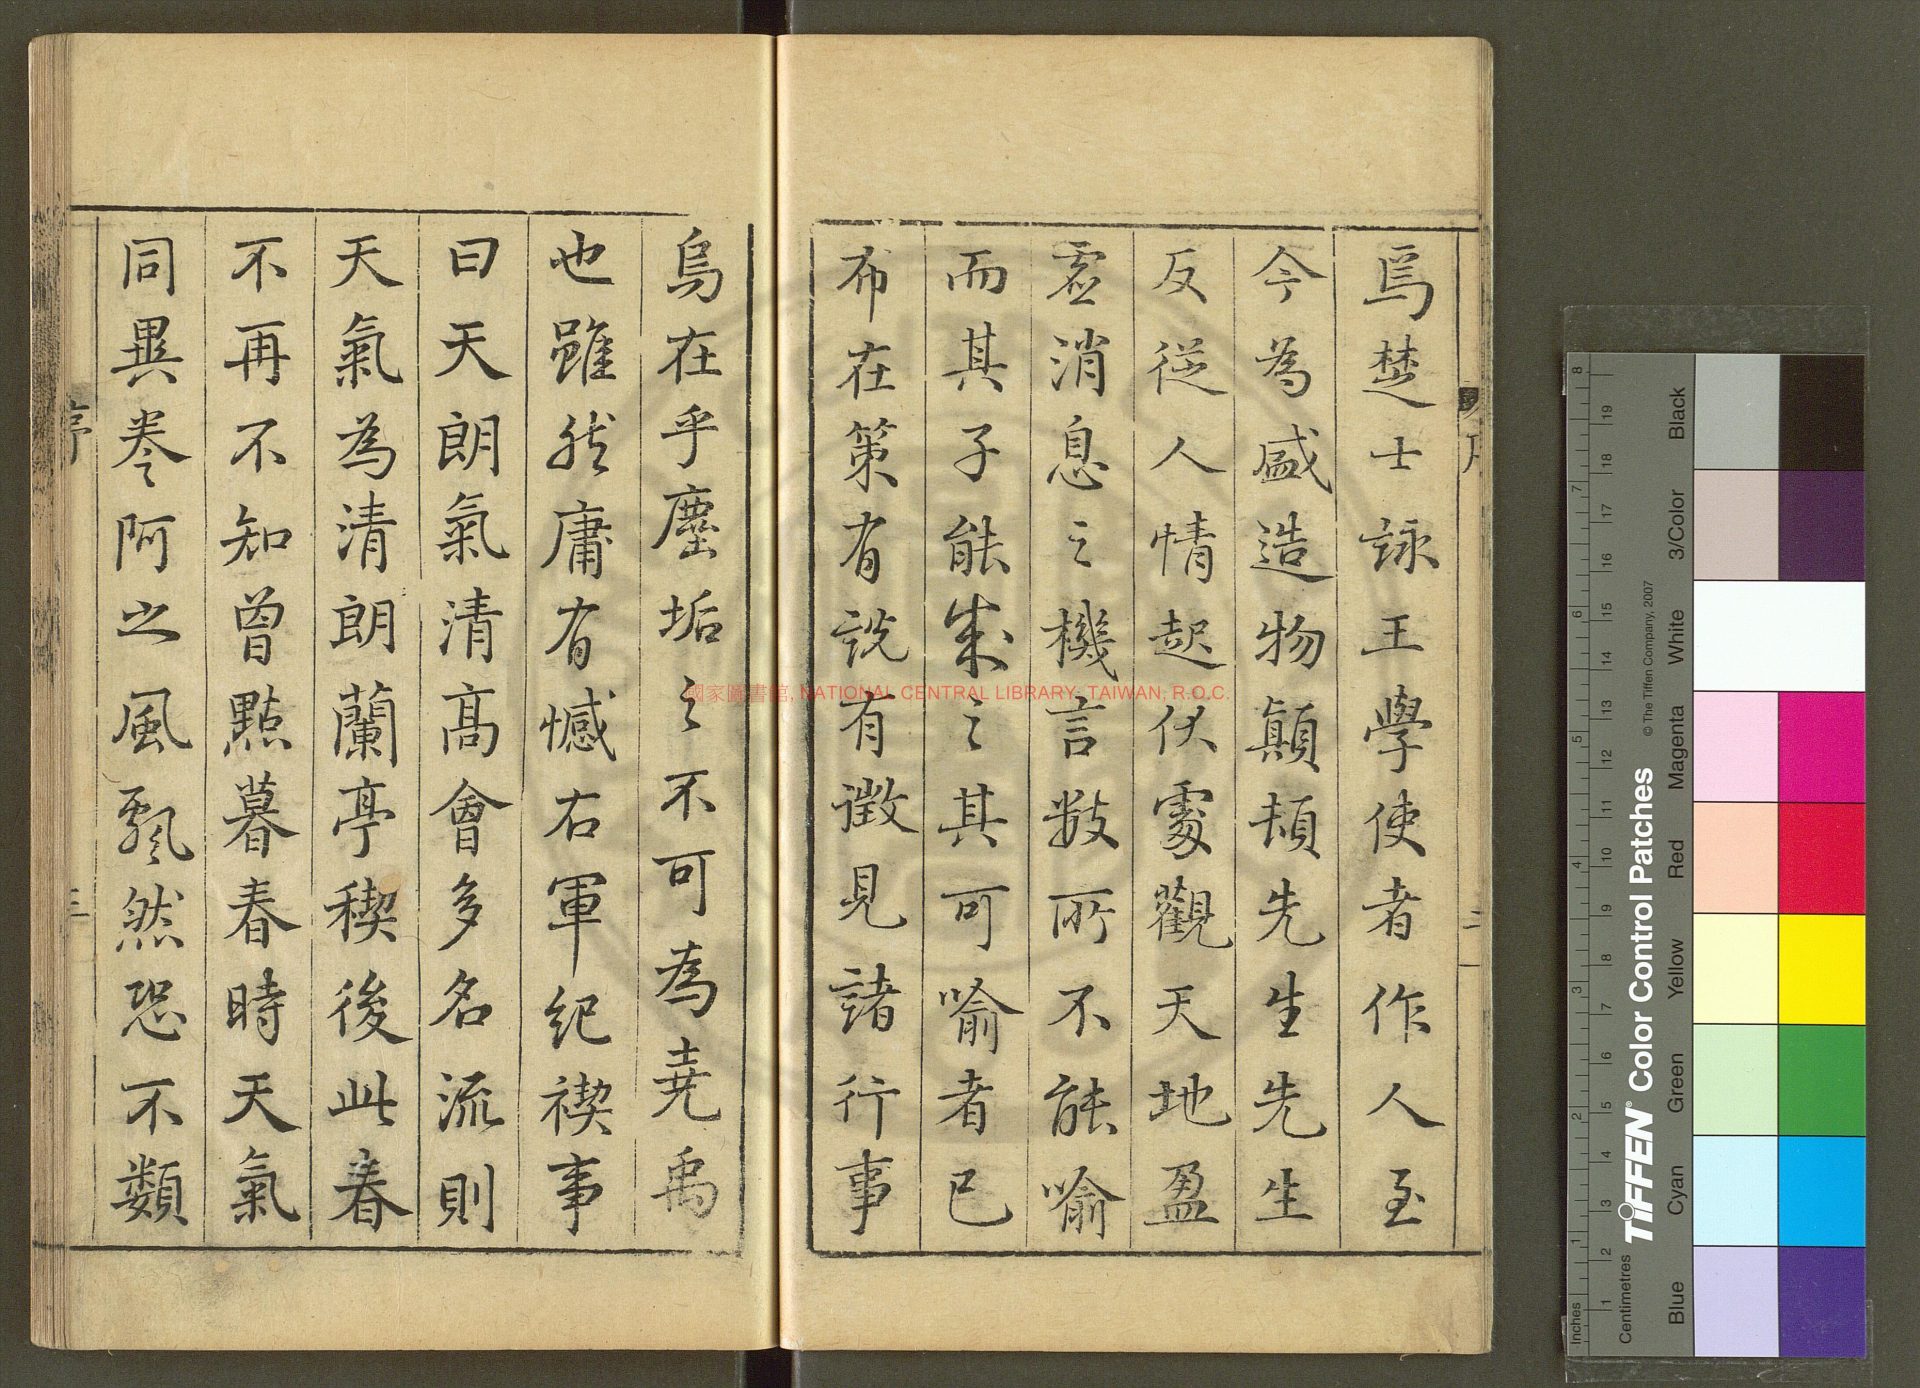 焉楚士詠王學使者作人至
今為盛造物顛頓先生先生
反從人情起伏處觀天地盈
虛消息之機言數所不能喻
而其子能朱之其可喻者已
布在策有說有徵見諸行事
烏在乎塵垢之不可為堯禹
也雖然庸有憾右軍紀禊事
曰天朗氣清高會多名流則
天氣為清朗蘭亭稧後此春
不再不知曾點暮春時天氣
同異卷阿之風飄然恐不類
序
二
三
國家圖書館, NATIONAL CENTRAL LIBRARY, TAIWAN, R.O.C.
Inches 1 2 3 4 5 6 7 8
Centimetres 1 2 3 4 5 6 7 8 9 10 11 12 13 14 15 16 17 18 19
TIFFEN® Color Control Patches © The Tiffen Company, 2007
Blue Cyan Green Yellow Red Magenta White 3/Color Black